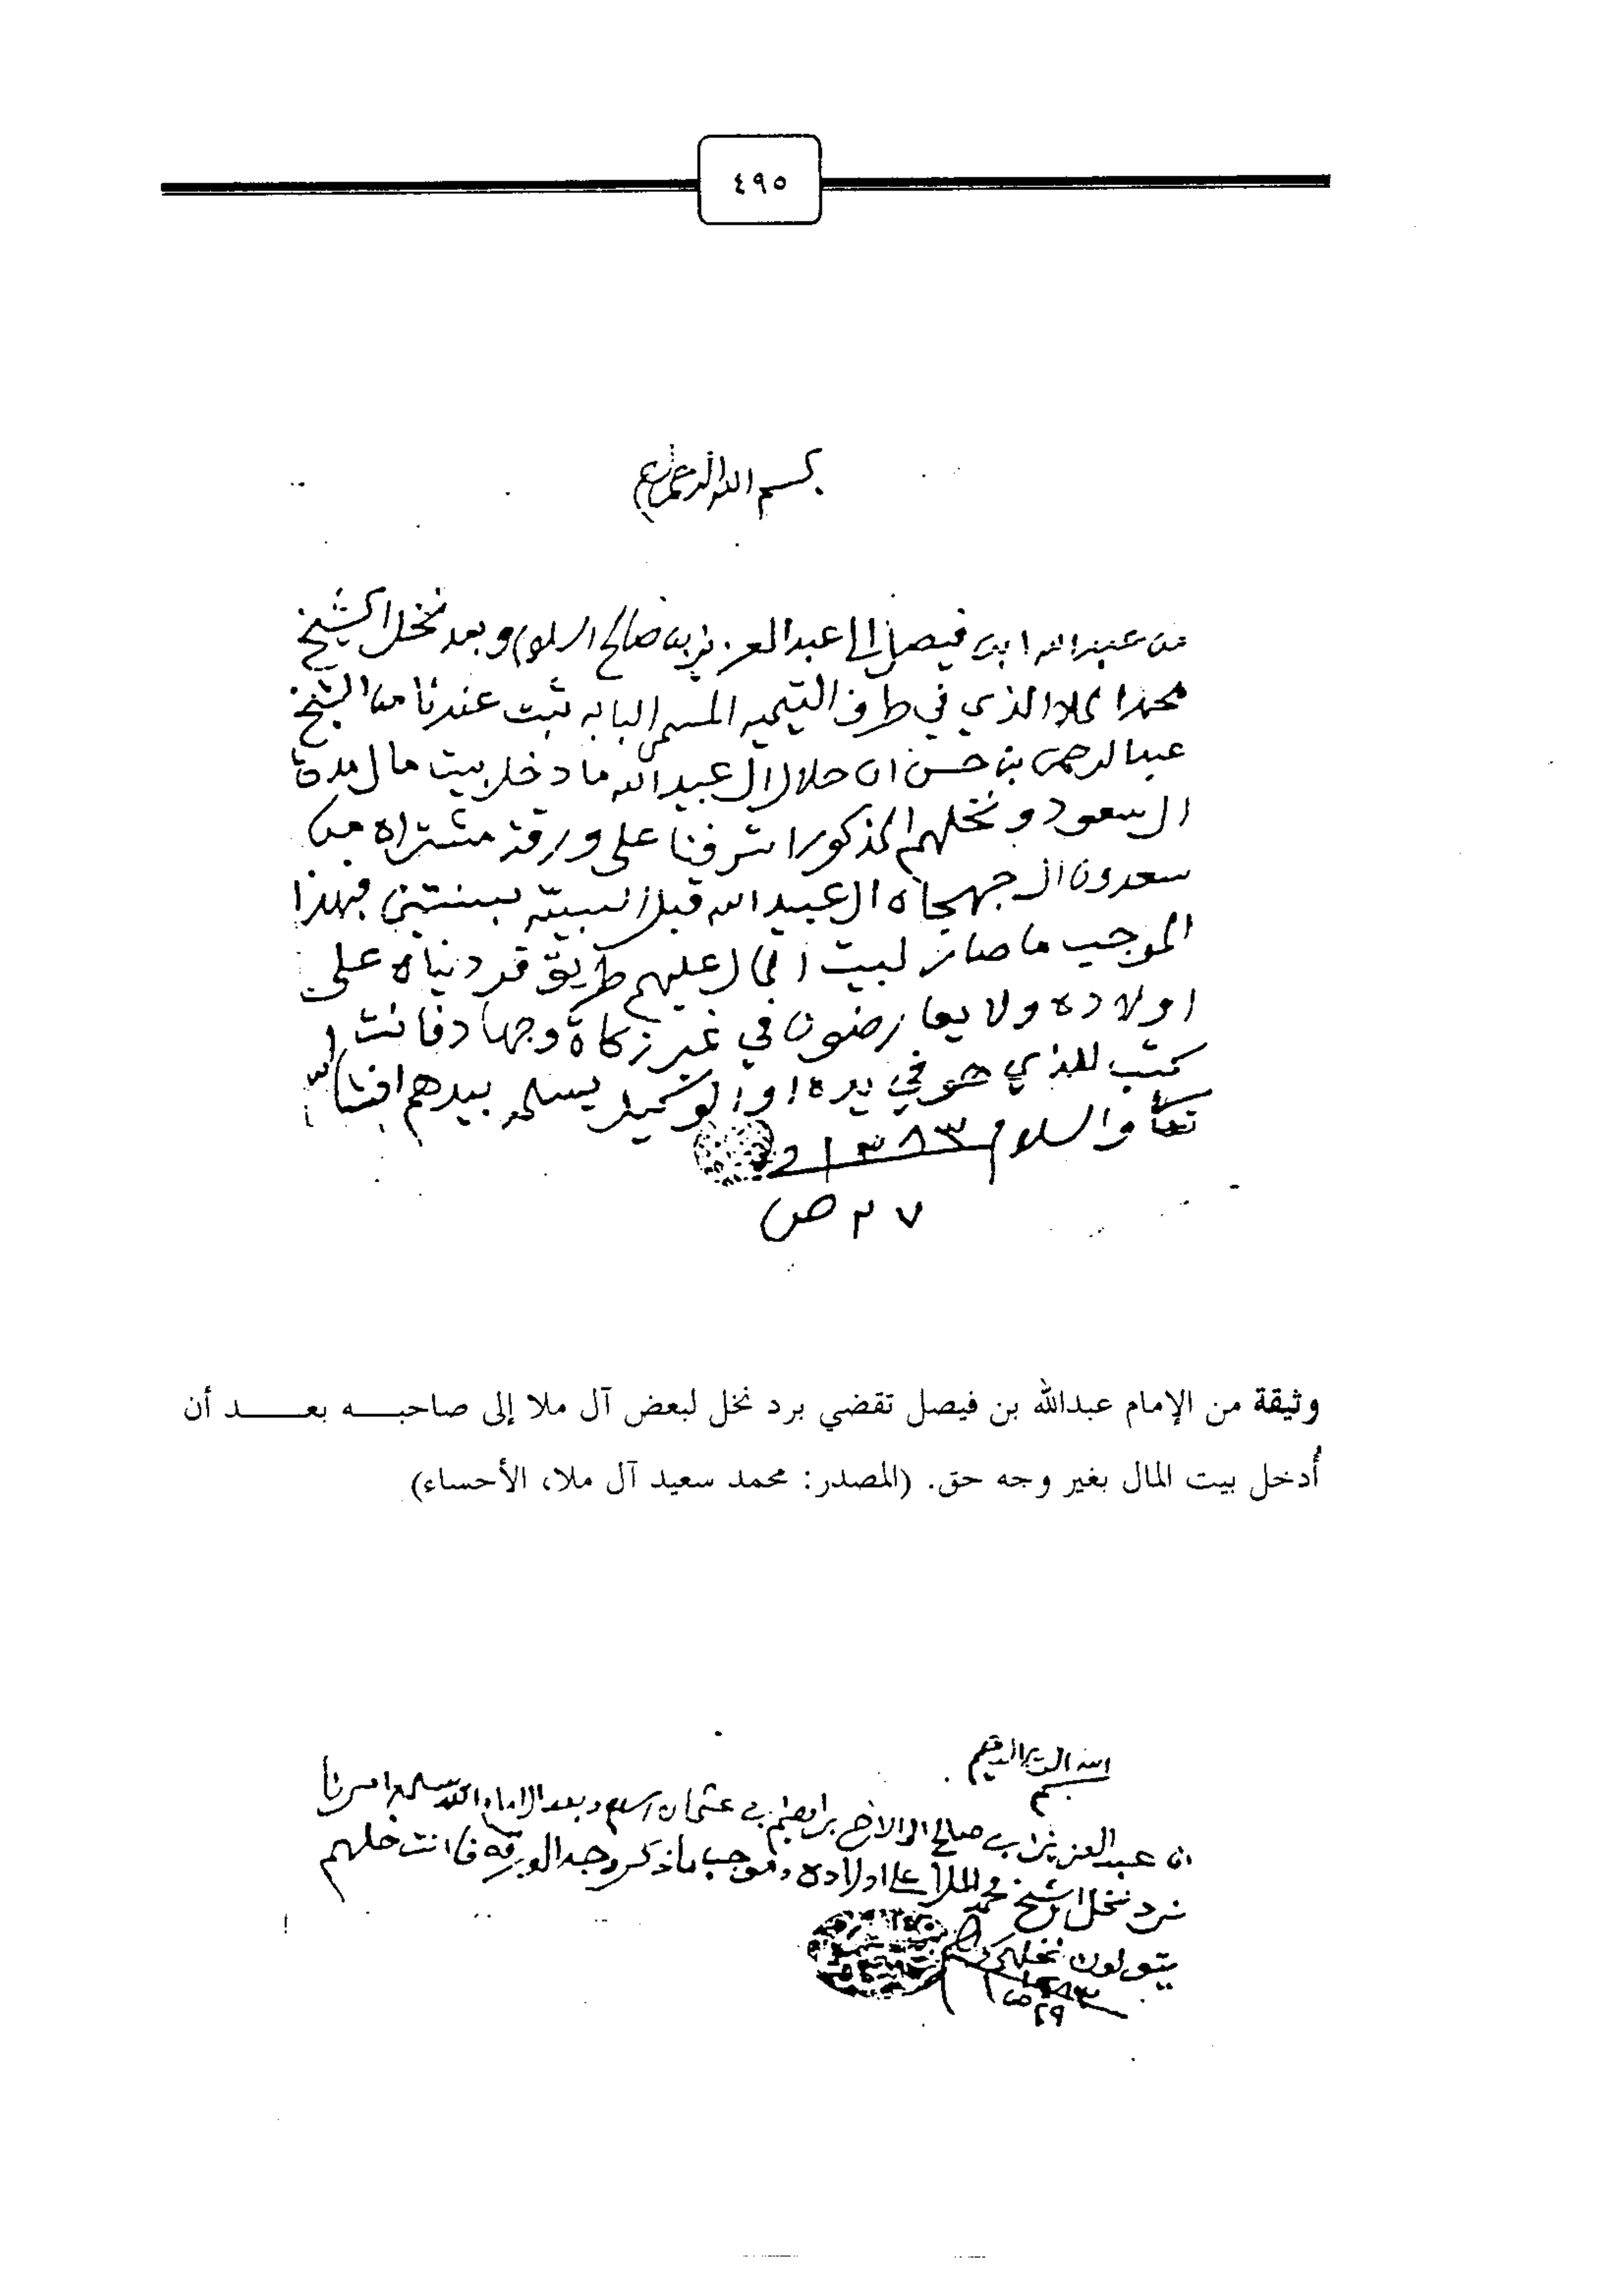 ٤٩٥
بسم الله الرحمن
من عبدالله ابن فيصل الى عبدالعزيز بن صالح السلام وبعد نخل الشيخ
محمد الملا الذي في طرف التيميه المسمى ثبت عندنا من الشيخ
عبدالرحمن بن حسن ان حلال ال عبيدالله ما دخل بيت مال مدة
ال سعود ونخلهم المذكور اشرفنا على ورقة مشتراه من
سعدون ال عبيدالله قبل بسنتين فبهذا
الموجب ما صار لبيت المال عليهم طريق
اولاده ولا يعارضون في غير زكاة وجهاد فانت
كتب للذي هو في يده او الوكيل يسلمه بيدهم انشا الله
تعالى والسلام
٢٧ ص
وثيقة من الإمام عبدالله بن فيصل تقضي برد نخل لبعض آل ملا إلى صاحبـــه بعـــــد أن
أُدخل بيت المال بغير وجه حق. (المصدر: محمد سعيد آل ملا، الأحساء)
بسم الله الرحمن الرحيم
من عبدالعزيز بن صالح الى الاخ براهيم بن عثمان وبعد الامام الله يسلمه امرنا
نرد نخل الشيخ محمد الملا على اولاده وموجب ما ذكر وجه الورقه فانت خلهم
يتولون نخلهم
٢٩